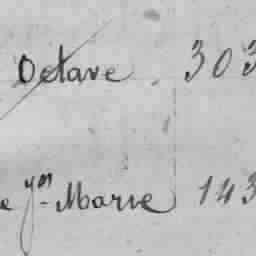 Octave 303
e Yᵒⁿ Marie 143